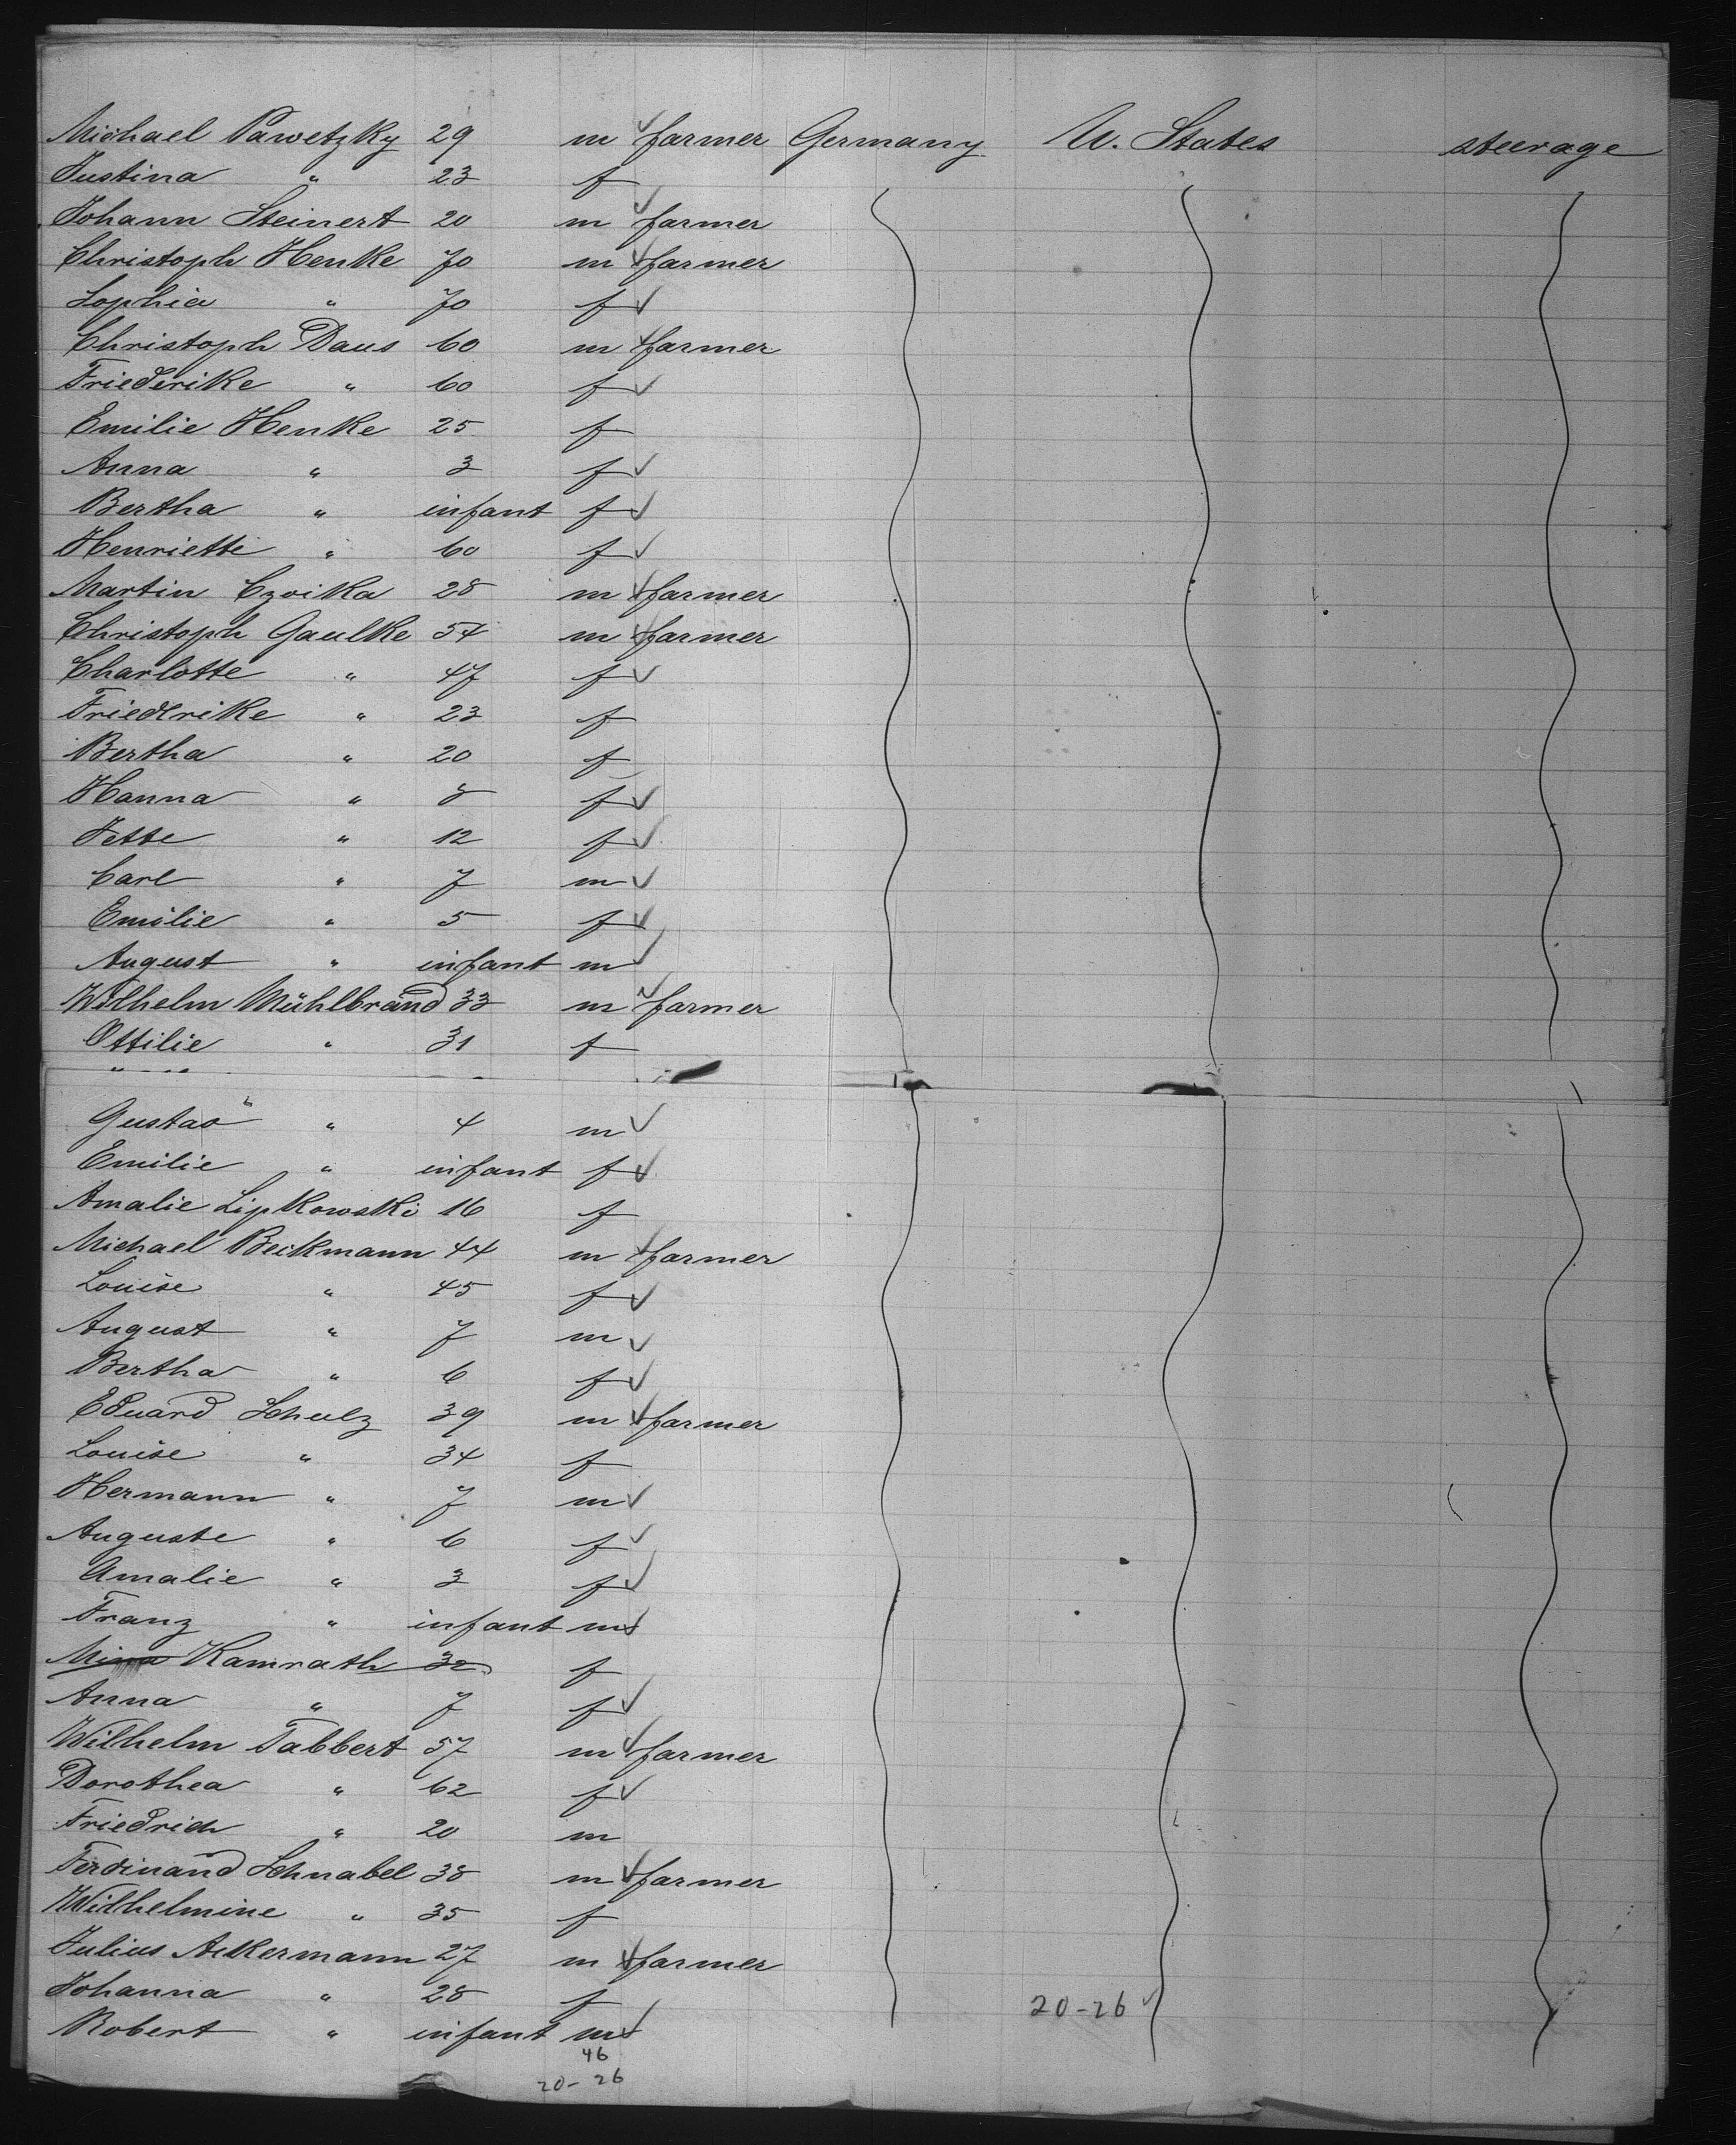 Michael Pawetzky 29 m farmer Germany U. States steerage
Justina " 23 f
Johann Steinert 20 m farmer
Christoph Henke 70 m farmer
Sophia " 70 f
Christoph Daus 60 m farmer
Friederike " 60 f
Emilie Henke 25 f
Anna " 3 f
Bertha " infant f
Henriette " 60 f
Martin Czoika 28 m farmer
Christoph Gaulke 54 m farmer
Charlotte " 47 f
Friedrike " 23 f
Bertha " 20 f
Hanna " 8 f
Jette " 12 f
Carl " 7 m
Emilie " 5 f
August " infant m
Wilhelm Mühlbrand 33 m farmer
Ottilie " 31 f
Gustav " 4 m
Emilie " infant f
Amalie Lipkowski 16 f
Michael Beckmann 44 m farmer
Louise " 45 f
August " 7 m
Bertha " 6 f
Eduard Schulz 39 m farmer
Louise " 34 f
Hermann " 7 m
Auguste " 6 f
Amalie " 3 f
Franz " infant m
Mina Kamrath 32 f
Anna " 7 f
Wilhelm Tabbert 57 m farmer
Dorothea " 62 f
Friedrich " 20 m
Ferdinand Schnabel 38 m farmer
Wilhelmine " 35 f
Julius Ackermann 27 m farmer
Johanna " 28 f 20-26
Robert " infant m
46
20-26